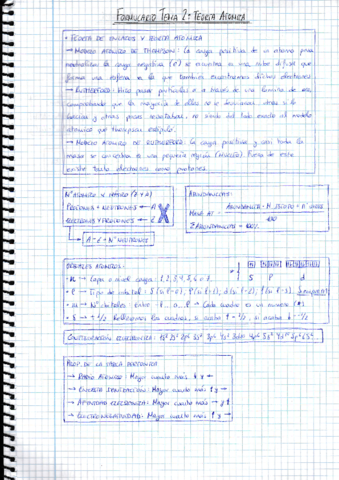 FORMULARIO TEMA 2: TEORÍA ATÓMICA
• TEORÍA DE ENLACES Y TEORÍA ATÓMICA
→ MODELO ATÓMICO DE THOMPSON: La carga positiva de un átomo para
neutralizar la carga negativa (e⁻) se encuentra en una nube difusa que
forma una esfera en la que también encontramos dichos electrones.
→ RUTHERFORD: Hizo pasar partículas α a través de una lámina de oro,
comprobando que la mayoría de ellas no se desviaban, otras sí lo
hacían y otras pocas rebotaban, no siendo del todo exacto el modelo
atómico que thompson
→ MODELO ATÓMICO DE RUTHERFORD: La carga positiva y casi toda la
masa se concentra en una pequeña región (núcleo). Fuera de este
existen tanto electrones como protones.
Nº ATÓMICO Y MÁSICO (Z y A)
PROTONES + NEUTRONES ← A
ELECTRONES Y PROTONES ← Z
X
A - Z = Nº NEUTRONES
ABUNDANCIAS:
MASA AT = ABUNDANCIA · M ISÓTOPO + Nº VECES
100
Σ ABUNDANCIAS = 100%
ORBITALES ATÓMICOS:
• n → Capa o nivel energ. 1, 2, 3, 4, 5, 6 o 8.
• l → Tipo de orbital:
S P d
CONFIGURACIÓN ELECTRÓNICA: 1s² 2s² 2p⁶ 3s² 3p⁶ 4s² 3d¹⁰ 4p⁶ 5s² 4d¹⁰ 5p⁶ 6s²
PROP. DE LA TABLA PERIÓDICA
→ RADIO ATÓMICO: Mayor cuanto más ↓ y ←
→ ENERGÍA IONIZACIÓN: Mayor cuanto más ↑ y →
→ AFINIDAD ELECTRÓNICA: Mayor cuanto más → y ↑
→ ELECTRONEGATIVIDAD: Mayor cuanto más ↑ y →